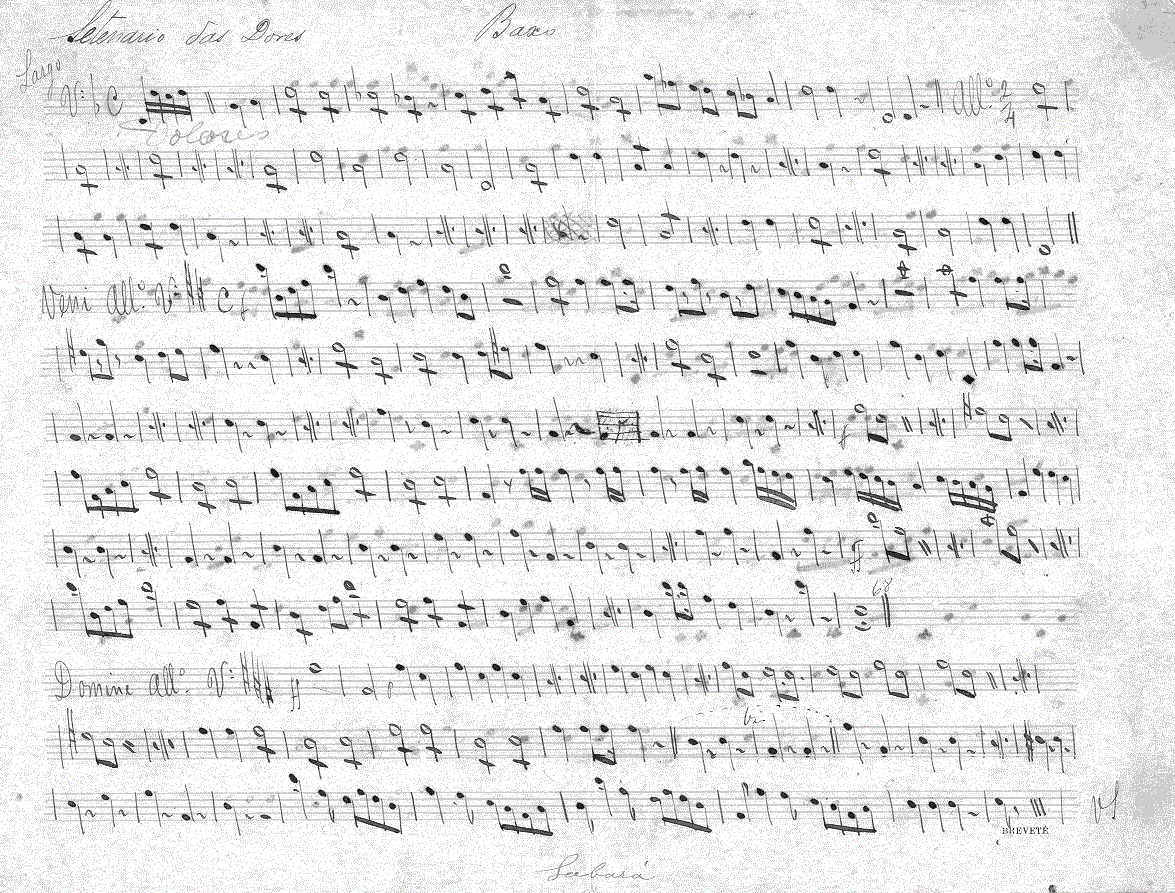 Setenario das Dores Baxo
Largo All.º 2 4
Dolores
Veni All.º
68
Domine All.º
8ª
VS
BREVETÉ
Sabará